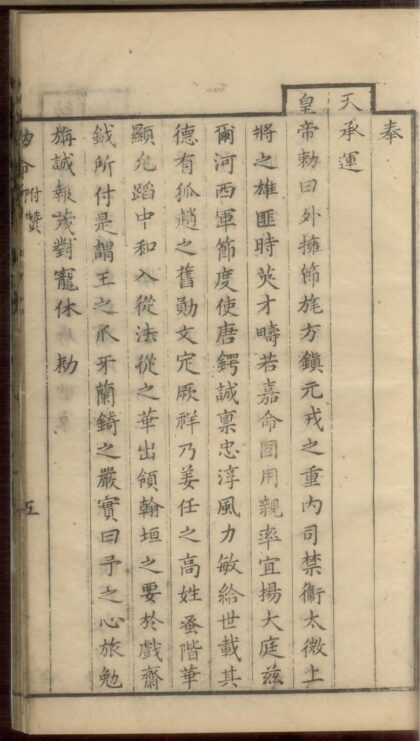 奉
天承運
皇帝勅曰外擁節旄方鎮元戎之重内司禁衞太微上
將之雄匪時英才疇若嘉命圀用親率宜揚大庭玆
爾河西軍節度使唐鍔誠禀忠淳風力敏給世載其
德有狐趙之舊勛文定厥祥乃姜任之高姓蚤階華
顯允蹈中和入從法從之華出領翰垣之要於戲齋
鉞所付是謂王之爪牙蘭錡之嚴實曰予之心旅勉
旃誠報茂對寵休勅
勅命附贊
五